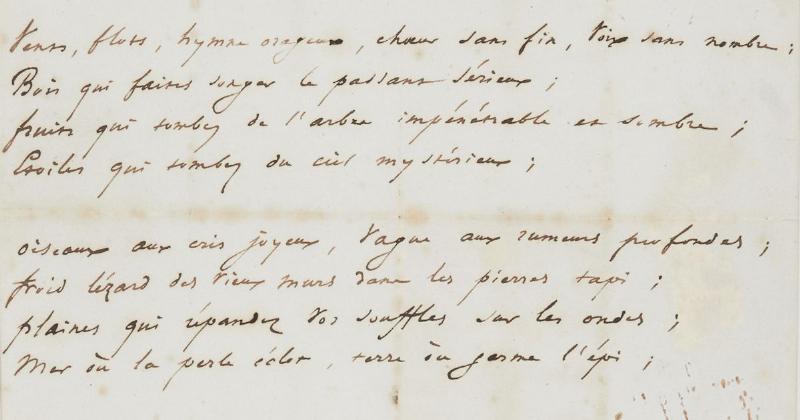 Vents, flots, hymne orageux, chœur sans fin, Voix sans nombre ;
Bois qui faites songer le passant sérieux ;
fruits qui tombez de l'arbre impénétrable et sombre ;
Etoiles qui tombez du ciel mystérieux ;
oiseaux aux cris joyeux, Vague aux rumeurs profondes ;
froid lézard des Vieux murs dans les pierres tapi ;
plaines qui répandez Vos souffles sur les ondes ;
Mer où la perle éclot, terre où germe l'épi ;